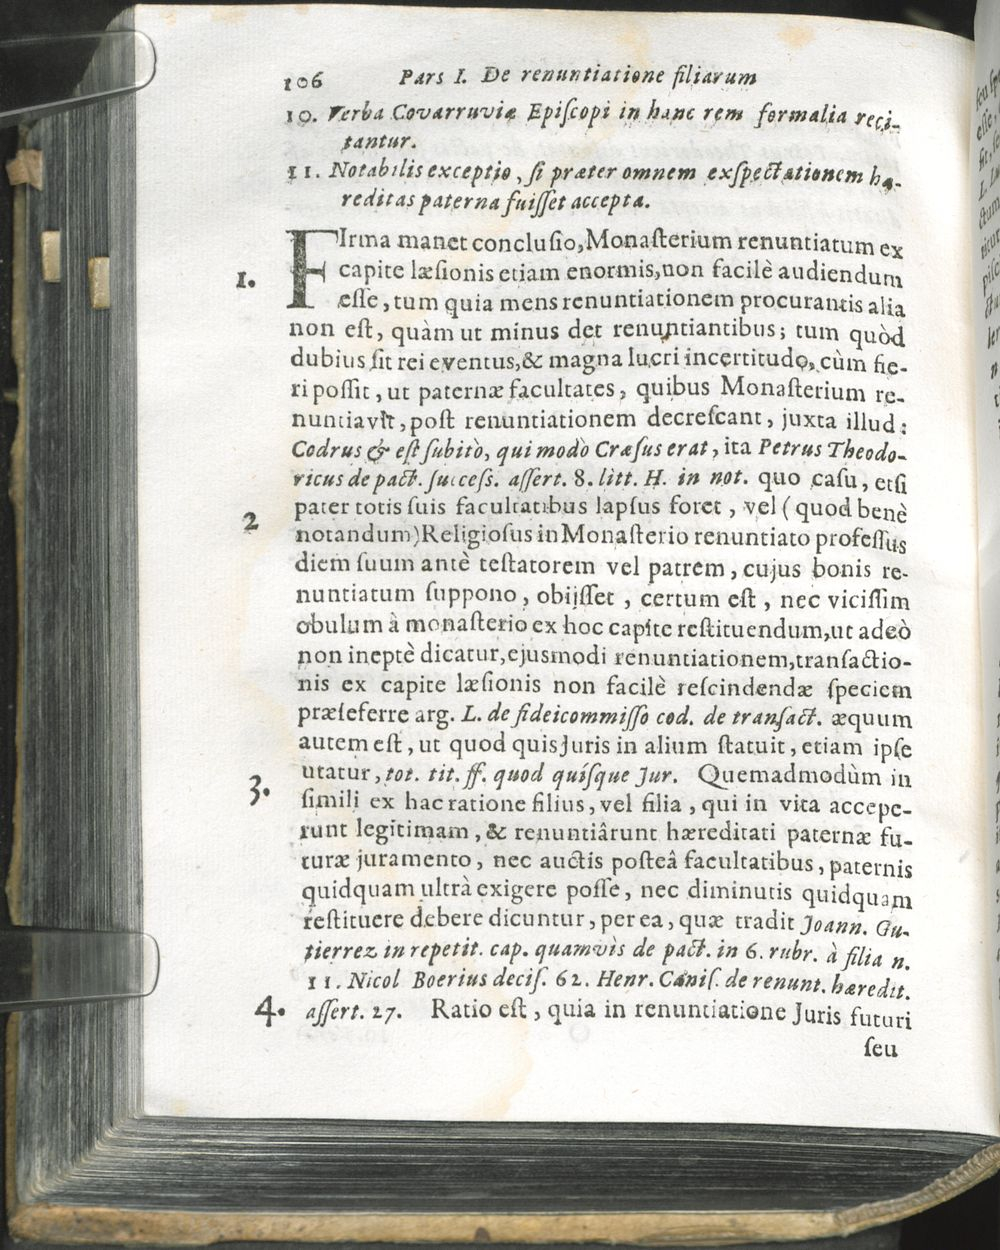 106 Pars I. De renuntiatione filiarum
10. Verba Covarruviæ Epiſcopi in hanc rem formalia reci-
tantur.
11. Notabilis exceptio, ſi præter omnem exſpectationem hæ-
reditas paterna fuiſſet accepta.
FIrma manet concluſio, Monaſterium renuntiatum ex
1. capite læſionis etiam enormis, non facilè audiendum
eſſe, tum quia mens renuntiationem procurantis alia
non eſt, quàm ut minus det renuntiantibus; tum quòd
dubius ſit rei eventus, & magna lucri incertitudo, cùm fie-
ri poſſit, ut paternæ facultates, quibus Monaſterium re-
nuntiavit, poſt renuntiationem decreſcant, juxta illud:
Codrus & eſt ſubitò, qui modò Cræſus erat, ita Petrus Theodo-
ricus de pact. ſucceſs. aſſert. 8. litt. H. in not. quo caſu, etſi
pater totis ſuis facultatibus lapſus foret, vel (quod benè
2 notandum) Religioſus in Monaſterio renuntiato profeſſus
diem ſuum antè teſtatorem vel patrem, cujus bonis re-
nuntiatum ſuppono, obijſſet, certum eſt, nec viciſſim
obulum à monaſterio ex hoc capite reſtituendum, ut adeò
non ineptè dicatur, ejusmodi renuntiationem, tranſactio-
nis ex capite læſionis non facilè reſcindendæ ſpeciem
præſeferre arg. L. de fideicommiſſo cod. de tranſact. æquum
autem eſt, ut quod quis Juris in alium ſtatuit, etiam ipſe
utatur, tot. tit. ff. quod quiſque Jur. Quemadmodùm in
3. ſimili ex hac ratione filius, vel filia, qui in vita accepe-
runt legitimam, & renuntiârunt hæreditati paternæ fu-
turæ juramento, nec auctis poſteâ facultatibus, paternis
quidquam ultrà exigere poſſe, nec diminutis quidquam
reſtituere debere dicuntur, per ea, quæ tradit Joann. Gu-
tierrez in repetit. cap. quamvis de pact. in 6. rubr. à filia n.
11. Nicol Boerius deciſ. 62. Henr. Caniſ. de renunt. hæredit.
4. aſſert. 27. Ratio eſt, quia in renuntiatione Juris futuri
ſeu